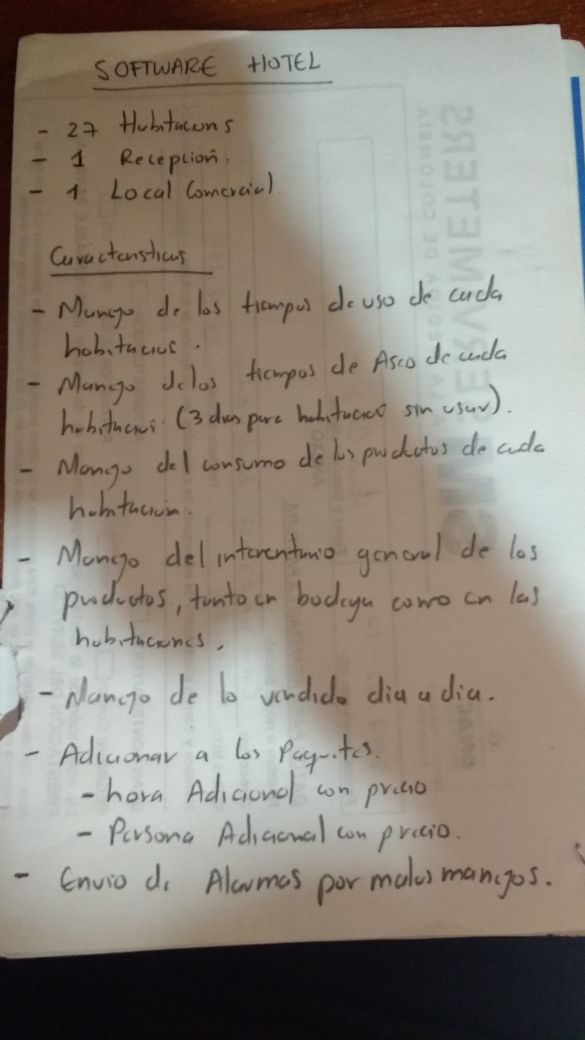 SOFTWARE HOTEL
- 27 Habitacions
- 1 Recepcion.
- 1 Local Comercial.
Caracteristicas
- Manejo de los tiempos de uso de cada
habitacion.
- Manejo de los tiempos de Aseo de cada
habitacion. (3 dias para habitacion sin usar).
- Manejo del consumo de los productos de cada
habitacion.
- Manejo del interentario general de los
productos, tanto en bodega como en las
habitaciones.
- Manejo de lo vendido dia a dia.
- Adicionar a los Paquetes.
- hora Adicional con precio
- Persona Adicional con precio.
- Envio de Alarmas por malos manejos.
SERVIMETERS
DE COLOMBIA